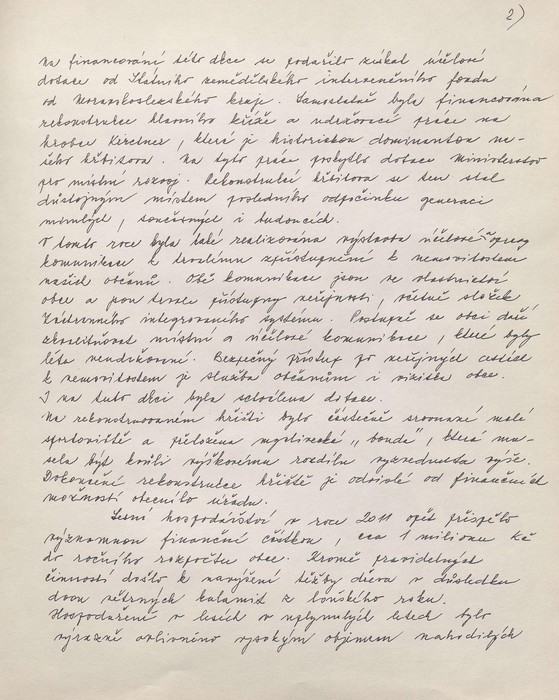 2)
Na financování této akce se podařilo získat účelové
dotace od Státního zemědělského intervenčního fondu
od Moravskoslezského kraje. Samostatně byla financována
rekonstrukce hlavního kříže a udržovací práce na
hrobce Kirchner, které je historickou dominantou na-
šeho hřbitova. Na tyto práce poskytlo dotace Ministerstvo
pro místní rozvoj. Rekonstrukcí hřbitova se ten stal
důstojným místem posledního odpočinku generací
minulých, současných i budoucích.
V tomto roce byla také realizována výstavba účelové
komunikace k trvalému zpřístupnění k nemovitostem
našich občanů. Obě komunikace jsou ve vlastnictví
obce a jsou trvale přístupny veřejnosti, včetně složek
Integrovaného systému. Postupně se obci daří
zkvalitňovat místní a účelové komunikace, které byly
léta neudržované. Bezpečný přístup po veřejných cestách
k nemovitostem je služba občanům i vizitka obce.
I na tuto akci byla schválena dotace.
Na rekonstruovaném hřišti bylo částečně srovnané malé
sportoviště a přeložena myslivecká „bouda", která mu-
sela být kvůli výškovému rozdílu vyzvednuta výše.
Dokončení rekonstrukce hřiště je odvislé od finančních
možností obecního úřadu.
Lesní hospodářství v roce 2011 opět přispělo
významnou finanční částkou, cca 1 milionu Kč
do ročního rozpočtu obce. Kromě pravidelných
činností došlo k navýšení těžby dřeva v důsledku
dvou větrných kalamit z loňského roku.
Hospodaření v lesích v uplynulých letech bylo
výrazně ovlivněno vysokým objemem nahodilých